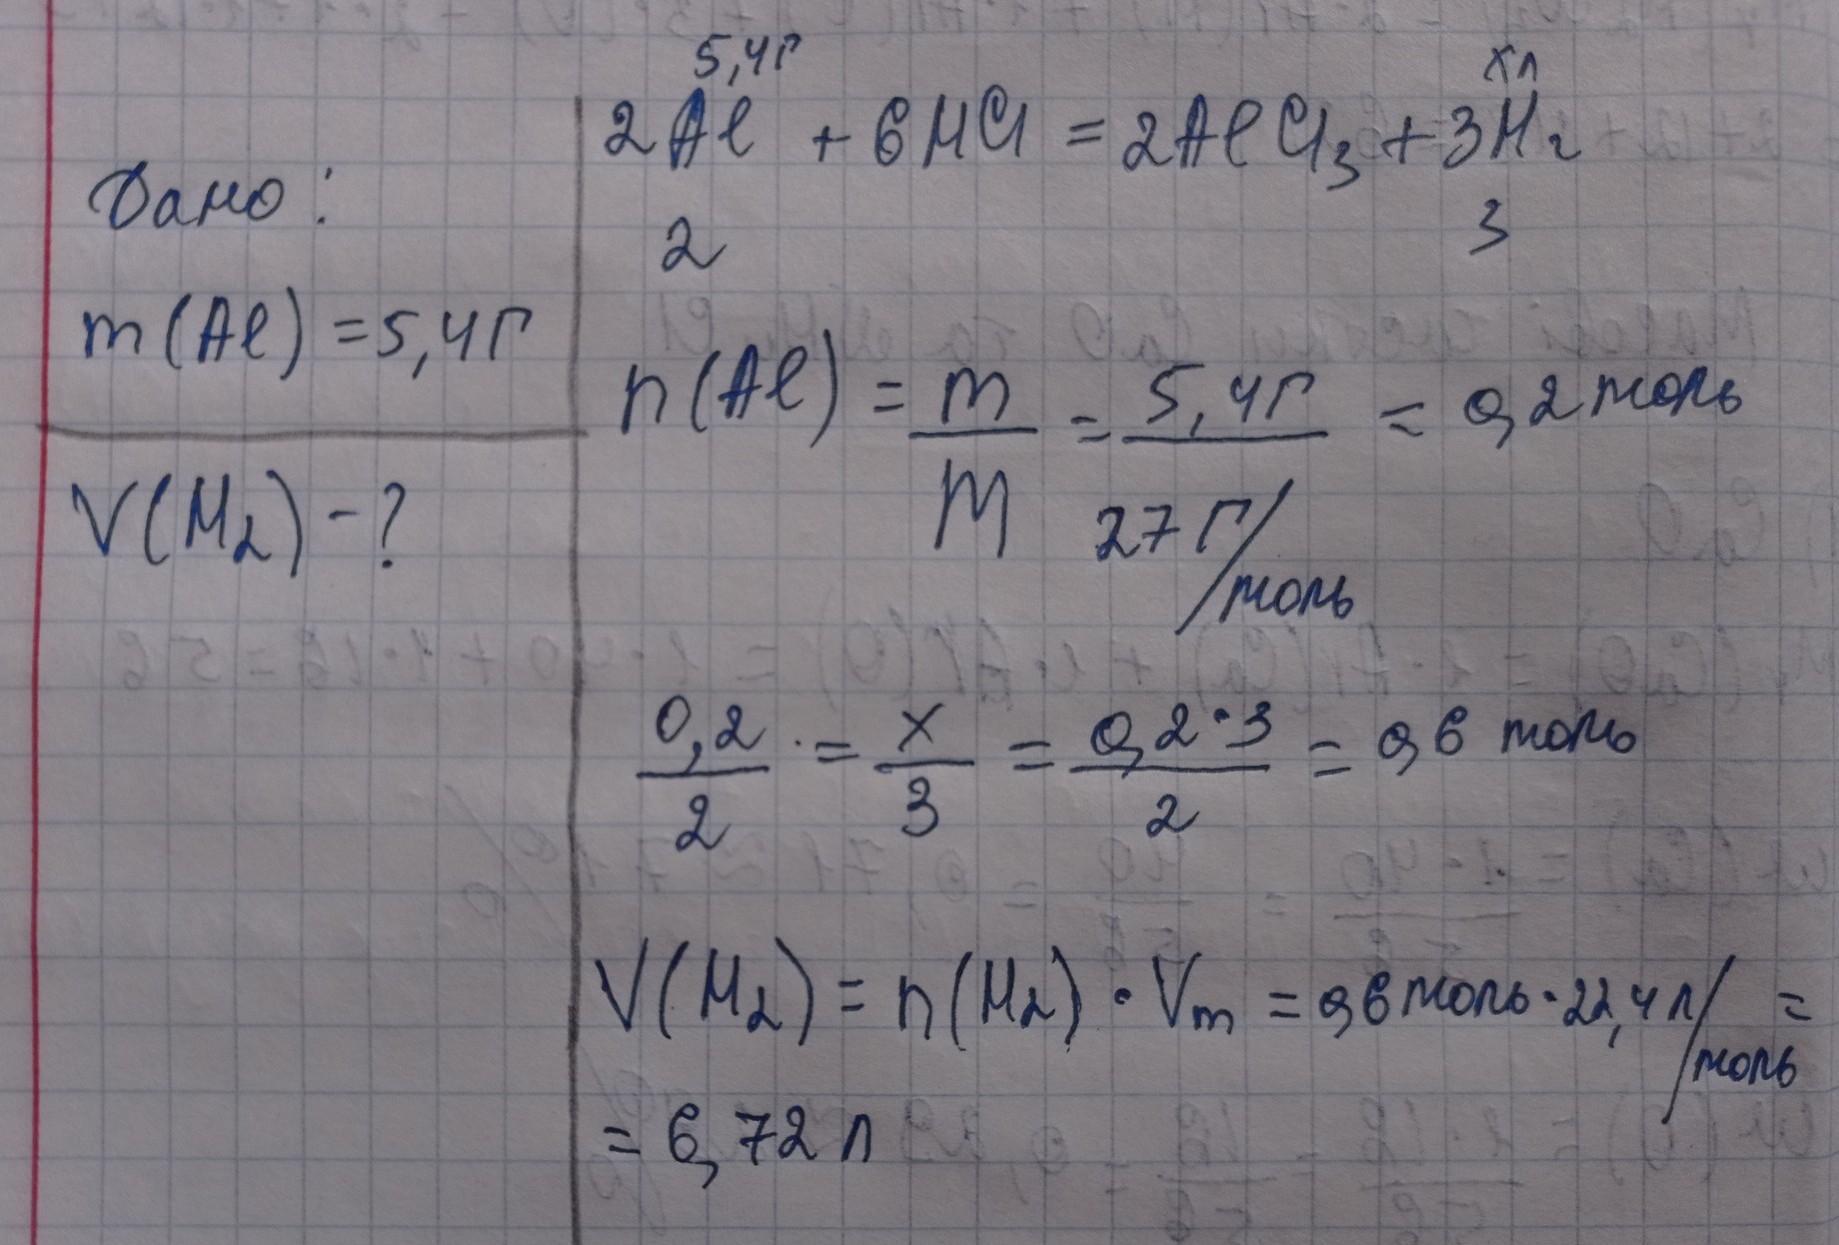 Дано:
m(Al) = 5,4г
V(H₂) - ?
5,4г xл
2Al + 6HCl = 2AlCl₃ + 3H₂
2 3
n(Al) = m/M = 5,4г/27г/моль = 0,2 моль
0,2/2 = x/3 = 0,2·3/2 = 0,6 моль
V(H₂) = n(H₂) · Vm = 0,6 моль · 22,4 л/моль =
= 6,72 л